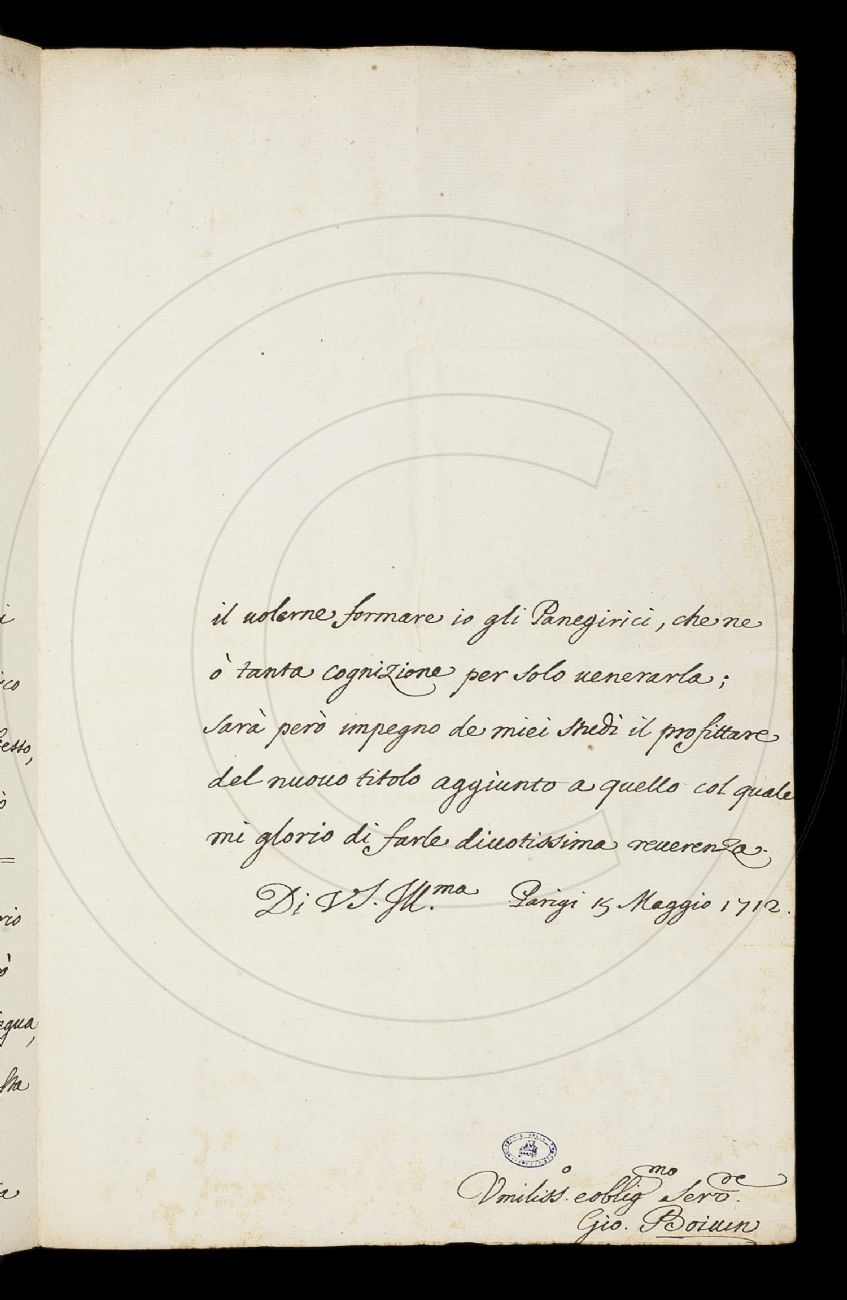 il uolerne formare io gli Panegirici, che ne
ò tanta cognizione per solo uenerarla;
sarà però impegno de miei studi il profittare
del nuouo titolo aggiunto a quello col quale
mi glorio di farle diuotissima reuerenza.
Di VS. Ill.ma Parigi 15 Maggio 1712.
Vmiliss.o e oblig.mo Seru.re
Gio. Boiuin